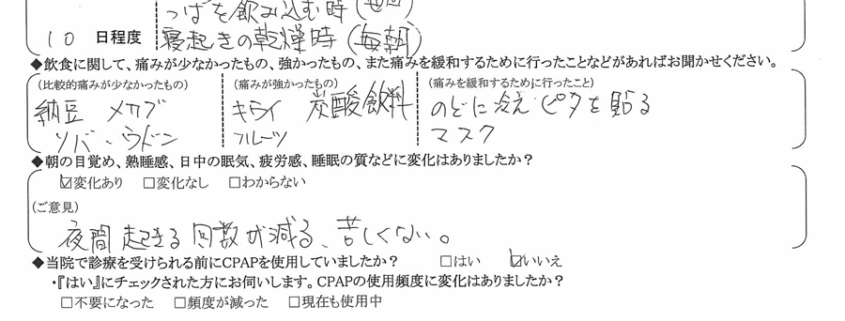 つばを飲み込む時(毎回)
10 日程度 寝起きの乾燥時(毎朝)
◆飲食に関して、痛みが少なかったもの、強かったもの、また痛みを緩和するために行ったことなどがあればお聞かせください。
(比較的痛みが少なかったもの) (痛みが強かったもの) (痛みを緩和するために行ったこと)
納豆 メカブ キライ 炭酸飲料 のどに冷えピタを貼る
ソバ・ウドン フルーツ マスク
◆朝の目覚め、熟睡感、日中の眠気、疲労感、睡眠の質などに変化はありましたか?
☑変化あり □変化なし □わからない
(ご意見)
夜間起きる回数が減る、苦しくない。
◆当院で診療を受けられる前にCPAPを使用していましたか? □はい ☑いいえ
・『はい』にチェックされた方にお伺いします。CPAPの使用頻度に変化はありましたか?
□不要になった □頻度が減った □現在も使用中